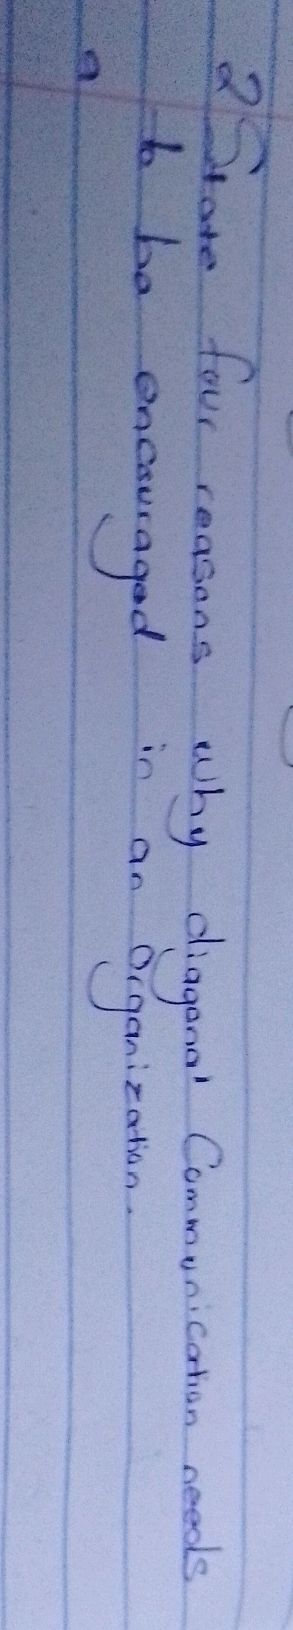 2 State four reasons why diagonal Communication needs
to be encouraged in an Organization.
a